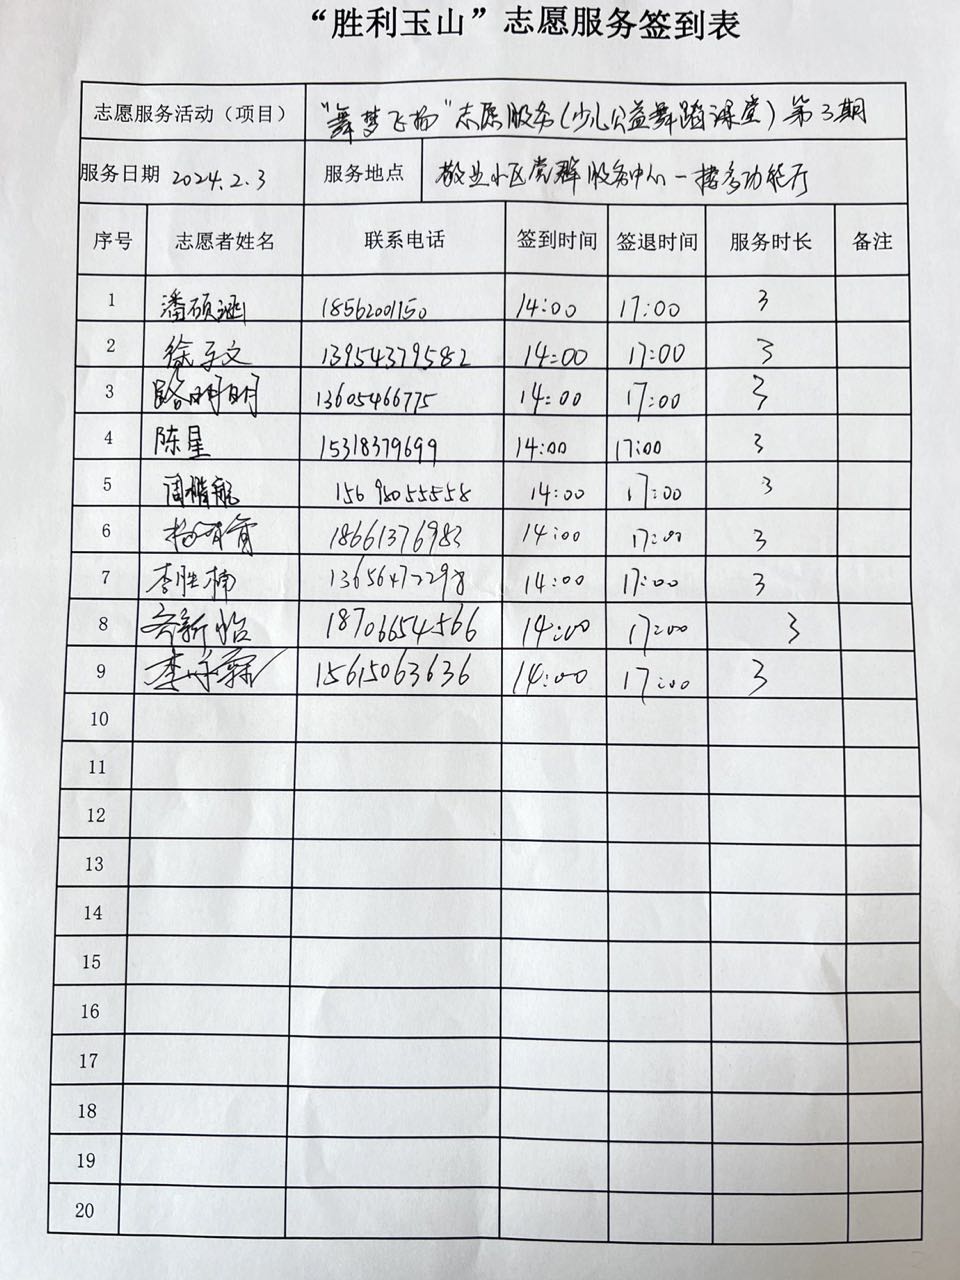 “胜利玉山”志愿服务签到表
志愿服务活动（项目） “舞梦飞扬”志愿服务（少儿公益舞蹈课堂）第3期
服务日期 2024.2.3 服务地点 敬业小区党群服务中心一楼多功能厅
序号 志愿者姓名 联系电话 签到时间 签退时间 服务时长 备注
1 潘硕涵 18562001150 14:00 17:00 3
2 徐子文 13954379582 14:00 17:00 3
3 路明明 13605466775 14:00 17:00 3
4 陈星 15318379699 14:00 17:00 3
5 15698055558 14:00 17:00 3
6 18661376982 14:00 17:00 3
7 李胜楠 14:00 17:00 3
8 齐新怡 18706654566 14:00 17:00 3
9 15615063636 14:00 17:00 3
10
11
12
13
14
15
16
17
18
19
20